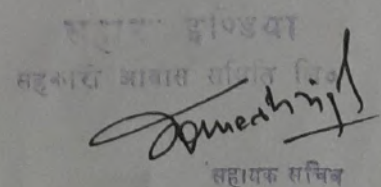 सहारा इण्डिया
सहकारी आवास समिति लि०
सहायक सचिव